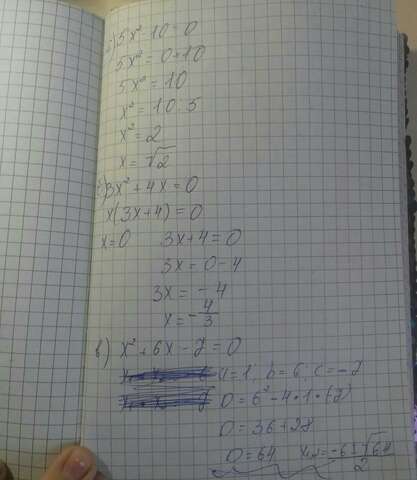 а) 5x² - 10 = 0
5x² = 0+10
5x² = 10
x² = 10:5
x² = 2
x = √2
б) 3x² + 4x = 0
x(3x+4) = 0
x=0 3x+4=0
3x = 0-4
3x = -4
x = -4/3
в) x² + 6x - 7 = 0
a=1, b=6, c=-7
D = 6² - 4·1·(-7)
D = 36+28
D = 64 x₁,₂ = -6±√64/2